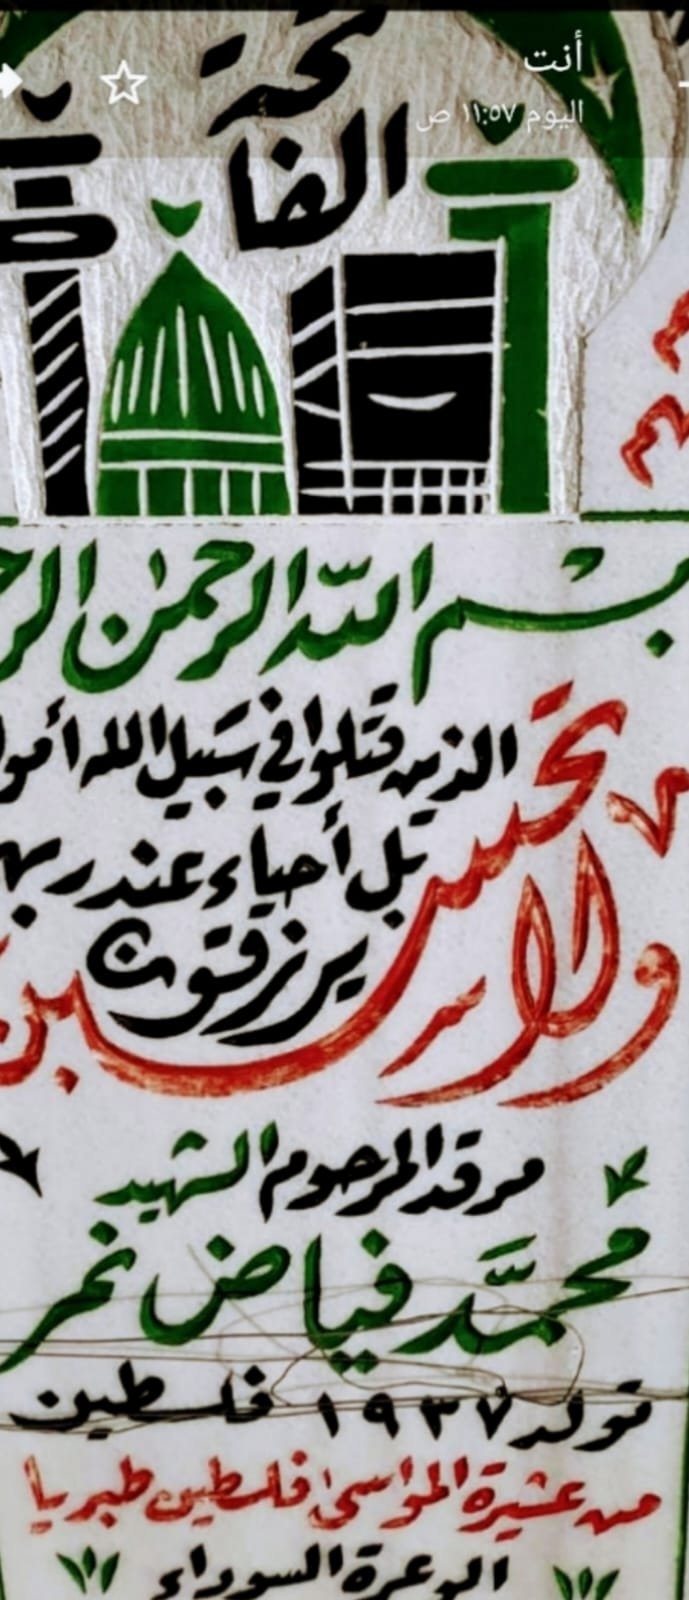 أنت
اليوم ١١:٥٧ ص
الفاتحة
بسم الله الرحمن الر
ولا تحسبن
الذين قتلوا في سبيل الله أموا
بل أحياء عند ربه
يرزقون
مرقد المرحوم الشهيد
محمَّد فياض نمر
تولد ١٩٣٧ فلسطين
من عشيرة المواسىٰ فلسطين طبريا
الوعرة السوداء